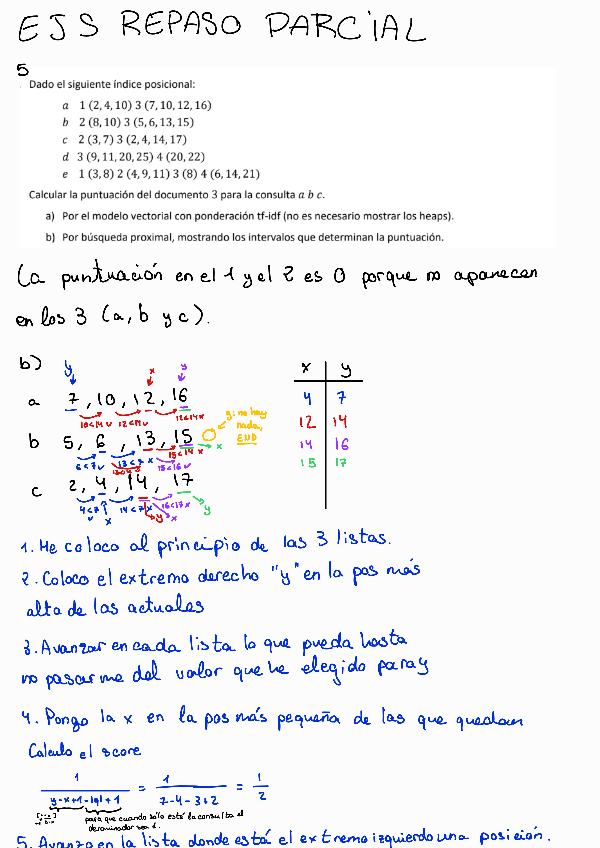 EJS REPASO PARCIAL
5
Dado el siguiente índice posicional:
a 1 (2, 4, 10) 3 (7, 10, 12, 16)
b 2 (8, 10) 3 (5, 6, 13, 15)
c 2 (3, 7) 3 (2, 4, 14, 17)
d 3 (9, 11, 20, 25) 4 (20, 22)
e 1 (3, 8) 2 (4, 9, 11) 3 (8) 4 (6, 14, 21)
Calcular la puntuación del documento 3 para la consulta a b c.
a) Por el modelo vectorial con ponderación tf-idf (no es necesario mostrar los heaps).
b) Por búsqueda proximal, mostrando los intervalos que determinan la puntuación.
La puntuación en el 1 y el 2 es 0 porque no aparecen
en los 3 (a, b y c).
b) y x y
a 7, 10, 12, 16
10<14 v 12<14 v 12<14 x
y: no hay
nada,
END
b 5, 6, 13, 15
6<7 v 13<7 x 15<16 v 15<14 x x
c 2, 4, 14, 17
4<7 v x 14<7 x 16<17 x y
y x
x y
4 7
12 14
14 16
15 17
1. Me coloco al principio de las 3 listas.
2. Coloco el extremo derecho "y" en la pos más
alta de las actuales
3. Avanzar en cada lista lo que pueda hasta
no pasarme del valor que he elegido para y
4. Pongo la x en la pos más pequeña de las que quedan
Calculo el score
1 / y-x+1-|q|+1 = 1 / 7-4-3+2 = 1 / 2
para que cuando sólo esté la consulta el
denominador sea 1.
5. Avanzo en la lista donde está el extremo izquierdo una posición.